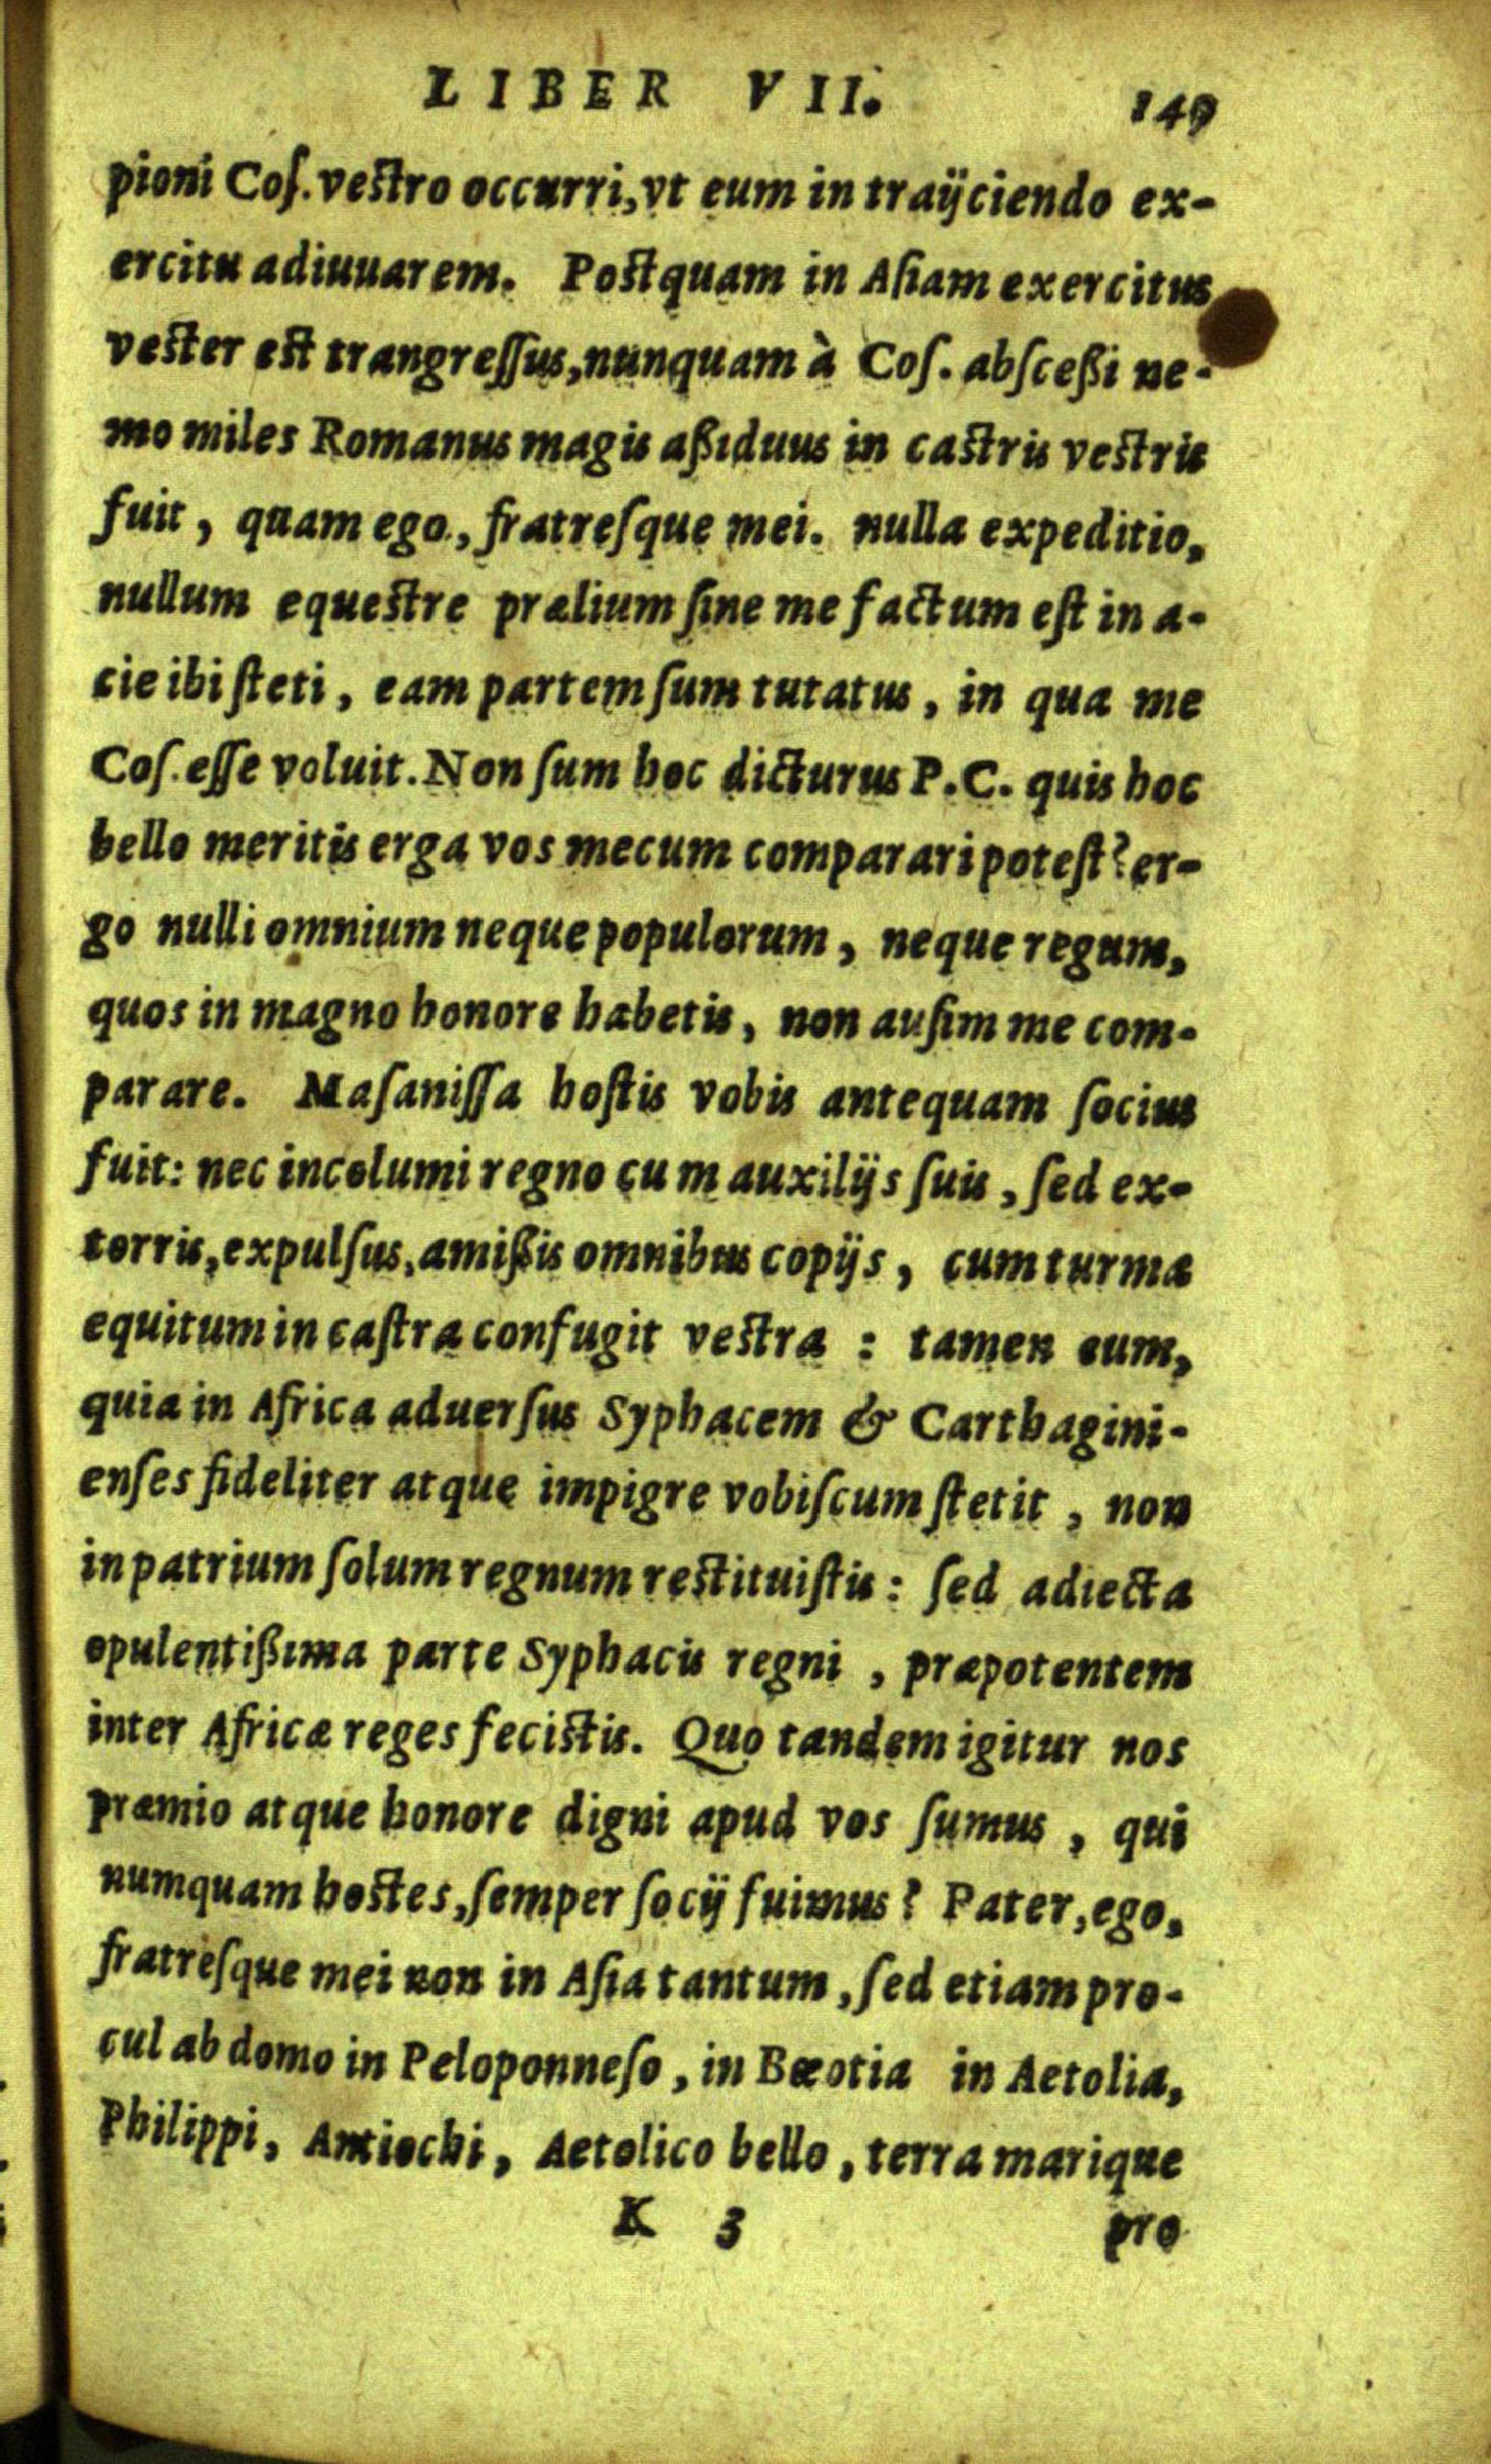 LIBER VII. 149
pioni Coſ. veſtro occurri, vt eum in traijciendo ex-
ercitu adiuuarem. Poſtquam in Aſiam exercitus
veſter eſt trangreſſus, nunquam à Coſ. abſceßi ne-
mo miles Romanus magis aßiduus in caſtris veſtris
fuit, quam ego, fratreſque mei. nulla expeditio,
nullum equeſtre prælium ſine me factum eſt in a-
cie ibi ſteti, eam partem ſum tutatus, in qua me
Coſ. eſſe voluit. Non ſum hoc dicturus P.C. quis hoc
bello meritis erga vos mecum comparari poteſt? er-
go nulli omnium neque populorum, neque regum,
quos in magno honore habetis, non auſim me com-
parare. Maſaniſſa hoſtis vobis antequam ſocius
fuit: nec incolumi regno cum auxilijs ſuis, ſed ex-
torris, expulſus, amißis omnibus copijs, cum turma
equitum in caſtra confugit veſtra : tamen eum,
quia in Africa aduerſus Syphacem & Carthagini-
enſes fideliter atque impigre vobiſcum ſtetit, non
in patrium ſolum regnum reſtituiſtis: ſed adiecta
opulentißima parte Syphacis regni, præpotentem
inter Africæ reges feciſtis. Quo tandem igitur nos
præmio atque honore digni apud vos ſumus, qui
numquam hoſtes, ſemper ſocij fuimus? Pater, ego,
fratreſque mei non in Aſia tantum, ſed etiam pro-
cul ab domo in Peloponneſo, in Bæotia in Aetolia,
Philippi, Antiochi, Aetolico bello, terra marique
K 3 pro